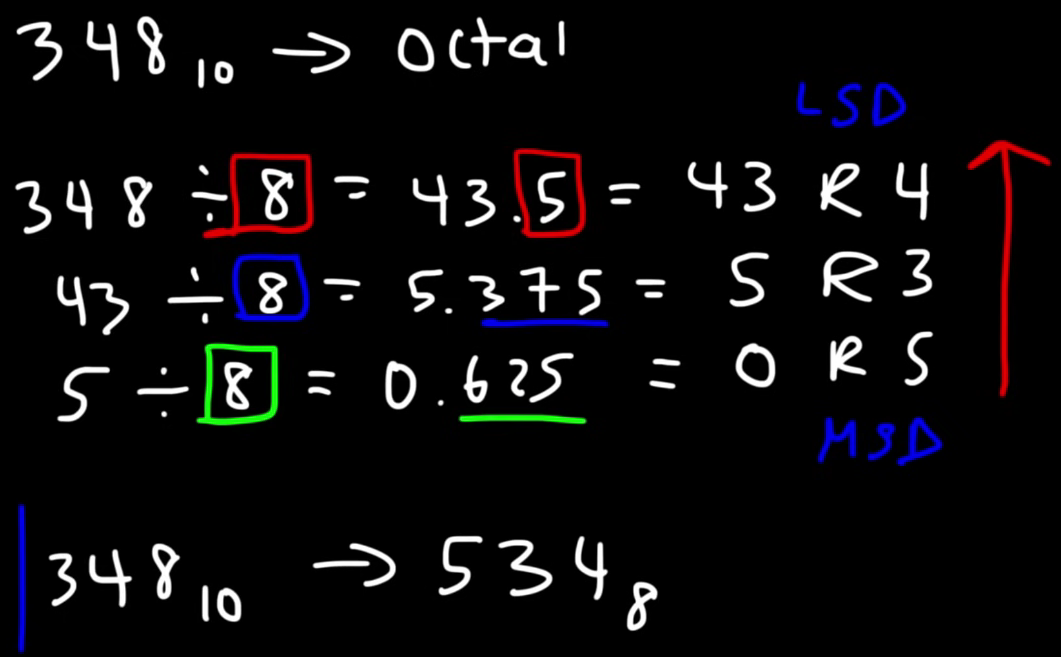 348₁₀ → Octal
LSD
348 ÷ 8 = 43.5 = 43 R 4
43 ÷ 8 = 5.375 = 5 R 3
5 ÷ 8 = 0.625 = 0 R 5
MSD
348₁₀ → 534₈